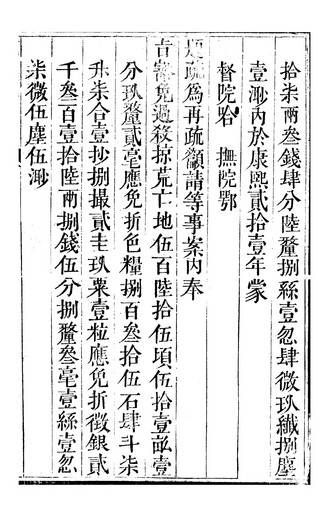 拾柒兩叁錢肆分陸釐捌絲壹忽肆微玖纖捌塵
壹渺內於康熙貳拾壹年蒙
督院咯　撫院鄂
題疏爲再疏籲請等事案內奉
旨豁免過殺掠荒亡地伍百陸拾伍頃伍拾壹畝壹
分玖釐貳毫應免折色糧捌百叁拾伍石肆斗柒
升柒合壹抄捌撮貳圭玖粟壹粒應免折徵銀貳
千叁百壹拾陸兩捌錢伍分捌釐叁毫壹絲壹忽
柒微伍塵伍渺